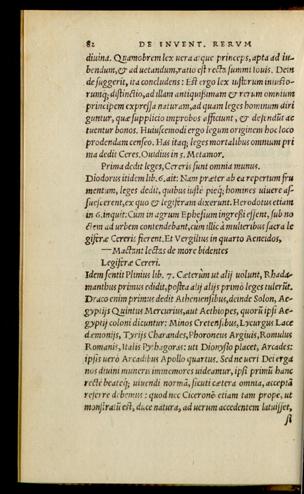 82 DE INVENT. RERVM
diuina. Quamobrem lex uera atque princeps, apta ad iu-
bendum, & ad uetandum, ratio est recta summi Iouis. Dein
de suggerit, ita concludens: Est ergo lex iustorum iniustio-
rumq; distinctio, ad illam antiquißimam & rerum omnium
principem expressa naturam, ad quam leges hominum diri
guntur, quæ supplicio improbos afficiunt, & defendūt ac
tuentur bonos. Huiuscemodi ergo legum originem hoc loco
prodendam censeo. Has itaq; leges mortalibus omnium pri
ma dedit Ceres. Ouidius in 5. Metamor.
Prima dedit leges, Cereris sunt omnia munus.
Diodorus itidem lib. 6. ait: Nam præter ab ea repertum fru
mentum, leges dedit, quibus iustè pieq; homines uiuere as-
suescerent, ex quo & legiferam dixerunt. Herodotus etiam
in 6. inquit: Cum in agrum Ephesium ingreßi essent, sub no
ctem ad urbem contendebant, cùm illic à mulieribus sacra le
giferæ Cereris fierent. Et Vergilius in quarto Aeneidos,
—Mactant lectas de more bidentes
Legiferæ Cereri.
Idem sentit Plinius lib. 7. Cæterùm ut alij uolunt, Rhada-
manthus primus edidit, postra alij alijs primò leges tulerūt.
Draco enim primus dedit Atheniensibus, deinde Solon, Ae-
gyptijs Quintus Mercurius, aut Aethiopes, quorū ipsi Ae-
gyptij coloni dicuntur: Minos Cretensibus, Lycurgus Lace
dæmonijs, Tyrijs Charondes, Phoroneus Argiuis, Romulus
Romanis, Italis Pythagoras: ut Dionysio placet, Arcades:
ipsis uerò Arcadibus Apollo quartus. Sed ne ueri Dei erga
nos diuini muneris immemores uideamur, ipsi primū hanc
rectè beateq; uiuendi normā, sicuti cætera omnia, acceptā
referre debemus: quod nec Ciceronē etiam tam prope, ut
monstratū est, duce natura, ad uerum accedentem latuisset,
si